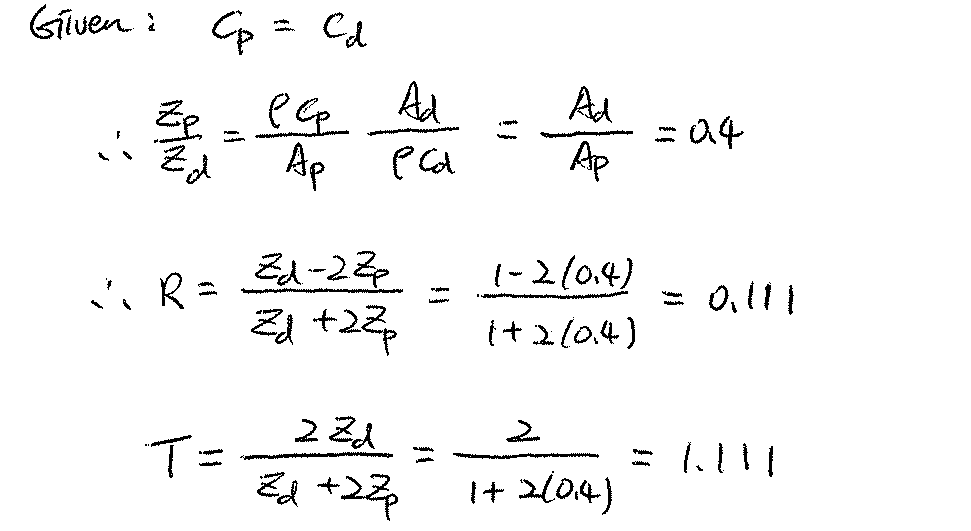 Given: Cp = Cd
∴ Zp/Zd = ρCp/Ap Ad/ρCd = Ad/Ap = 0.4
∴ R = (Zd-2Zp)/(Zd+2Zp) = (1-2(0.4))/(1+2(0.4)) = 0.111
T = 2Zd/(Zd+2Zp) = 2/(1+2(0.4)) = 1.111